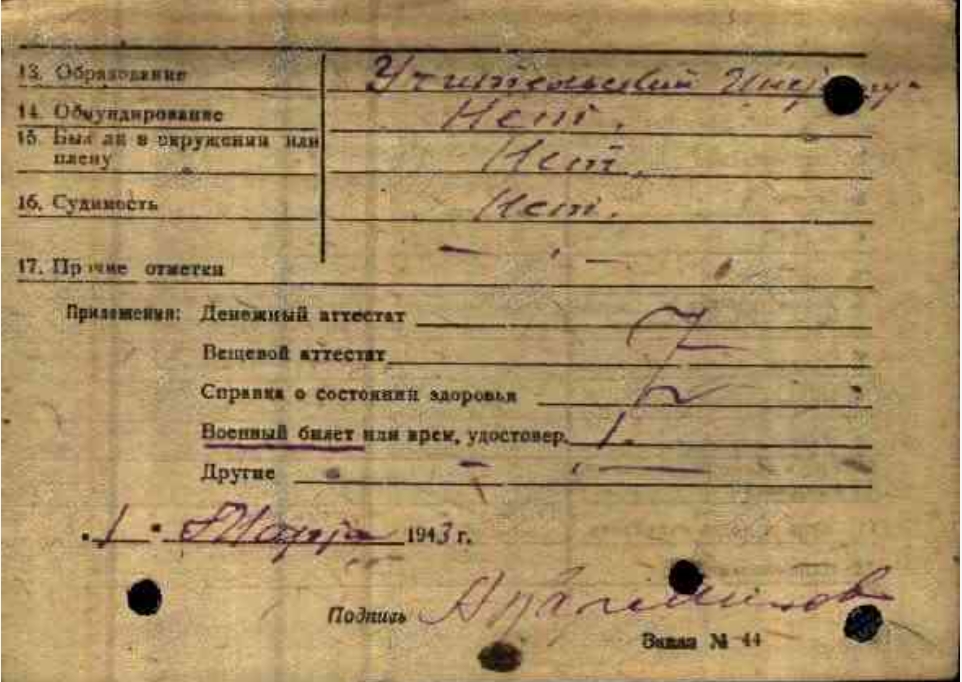 13. Образование Учительский
14. Обмундирование Нет.
15. Был ли в окружении или
плену Нет.
16. Судимость Нет.
17. Прочие отметки —
Приложения: Денежный аттестат
Вещевой аттестат
Справка о состоянии здоровья
Военный билет или врем. удостовер. 1.
Другие —
„1“ Марта 1943 г.
Подпись
Заказ № 44